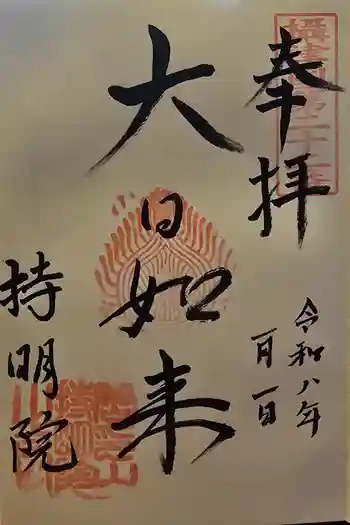 奉拝
令和八年
一月一日
大日如来
持明院